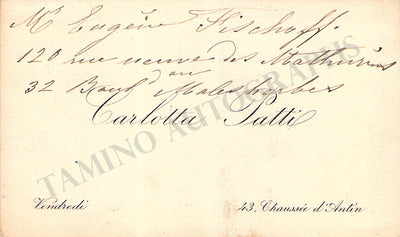 Mr Eugène Fischoff.
120 rue neuve des Mathurins
ou
32 Boul^d Malesherbes
Carlotta Patti
Vendredi
43, Chaussée d'Antin
TAMINO AUTOGRAPHS